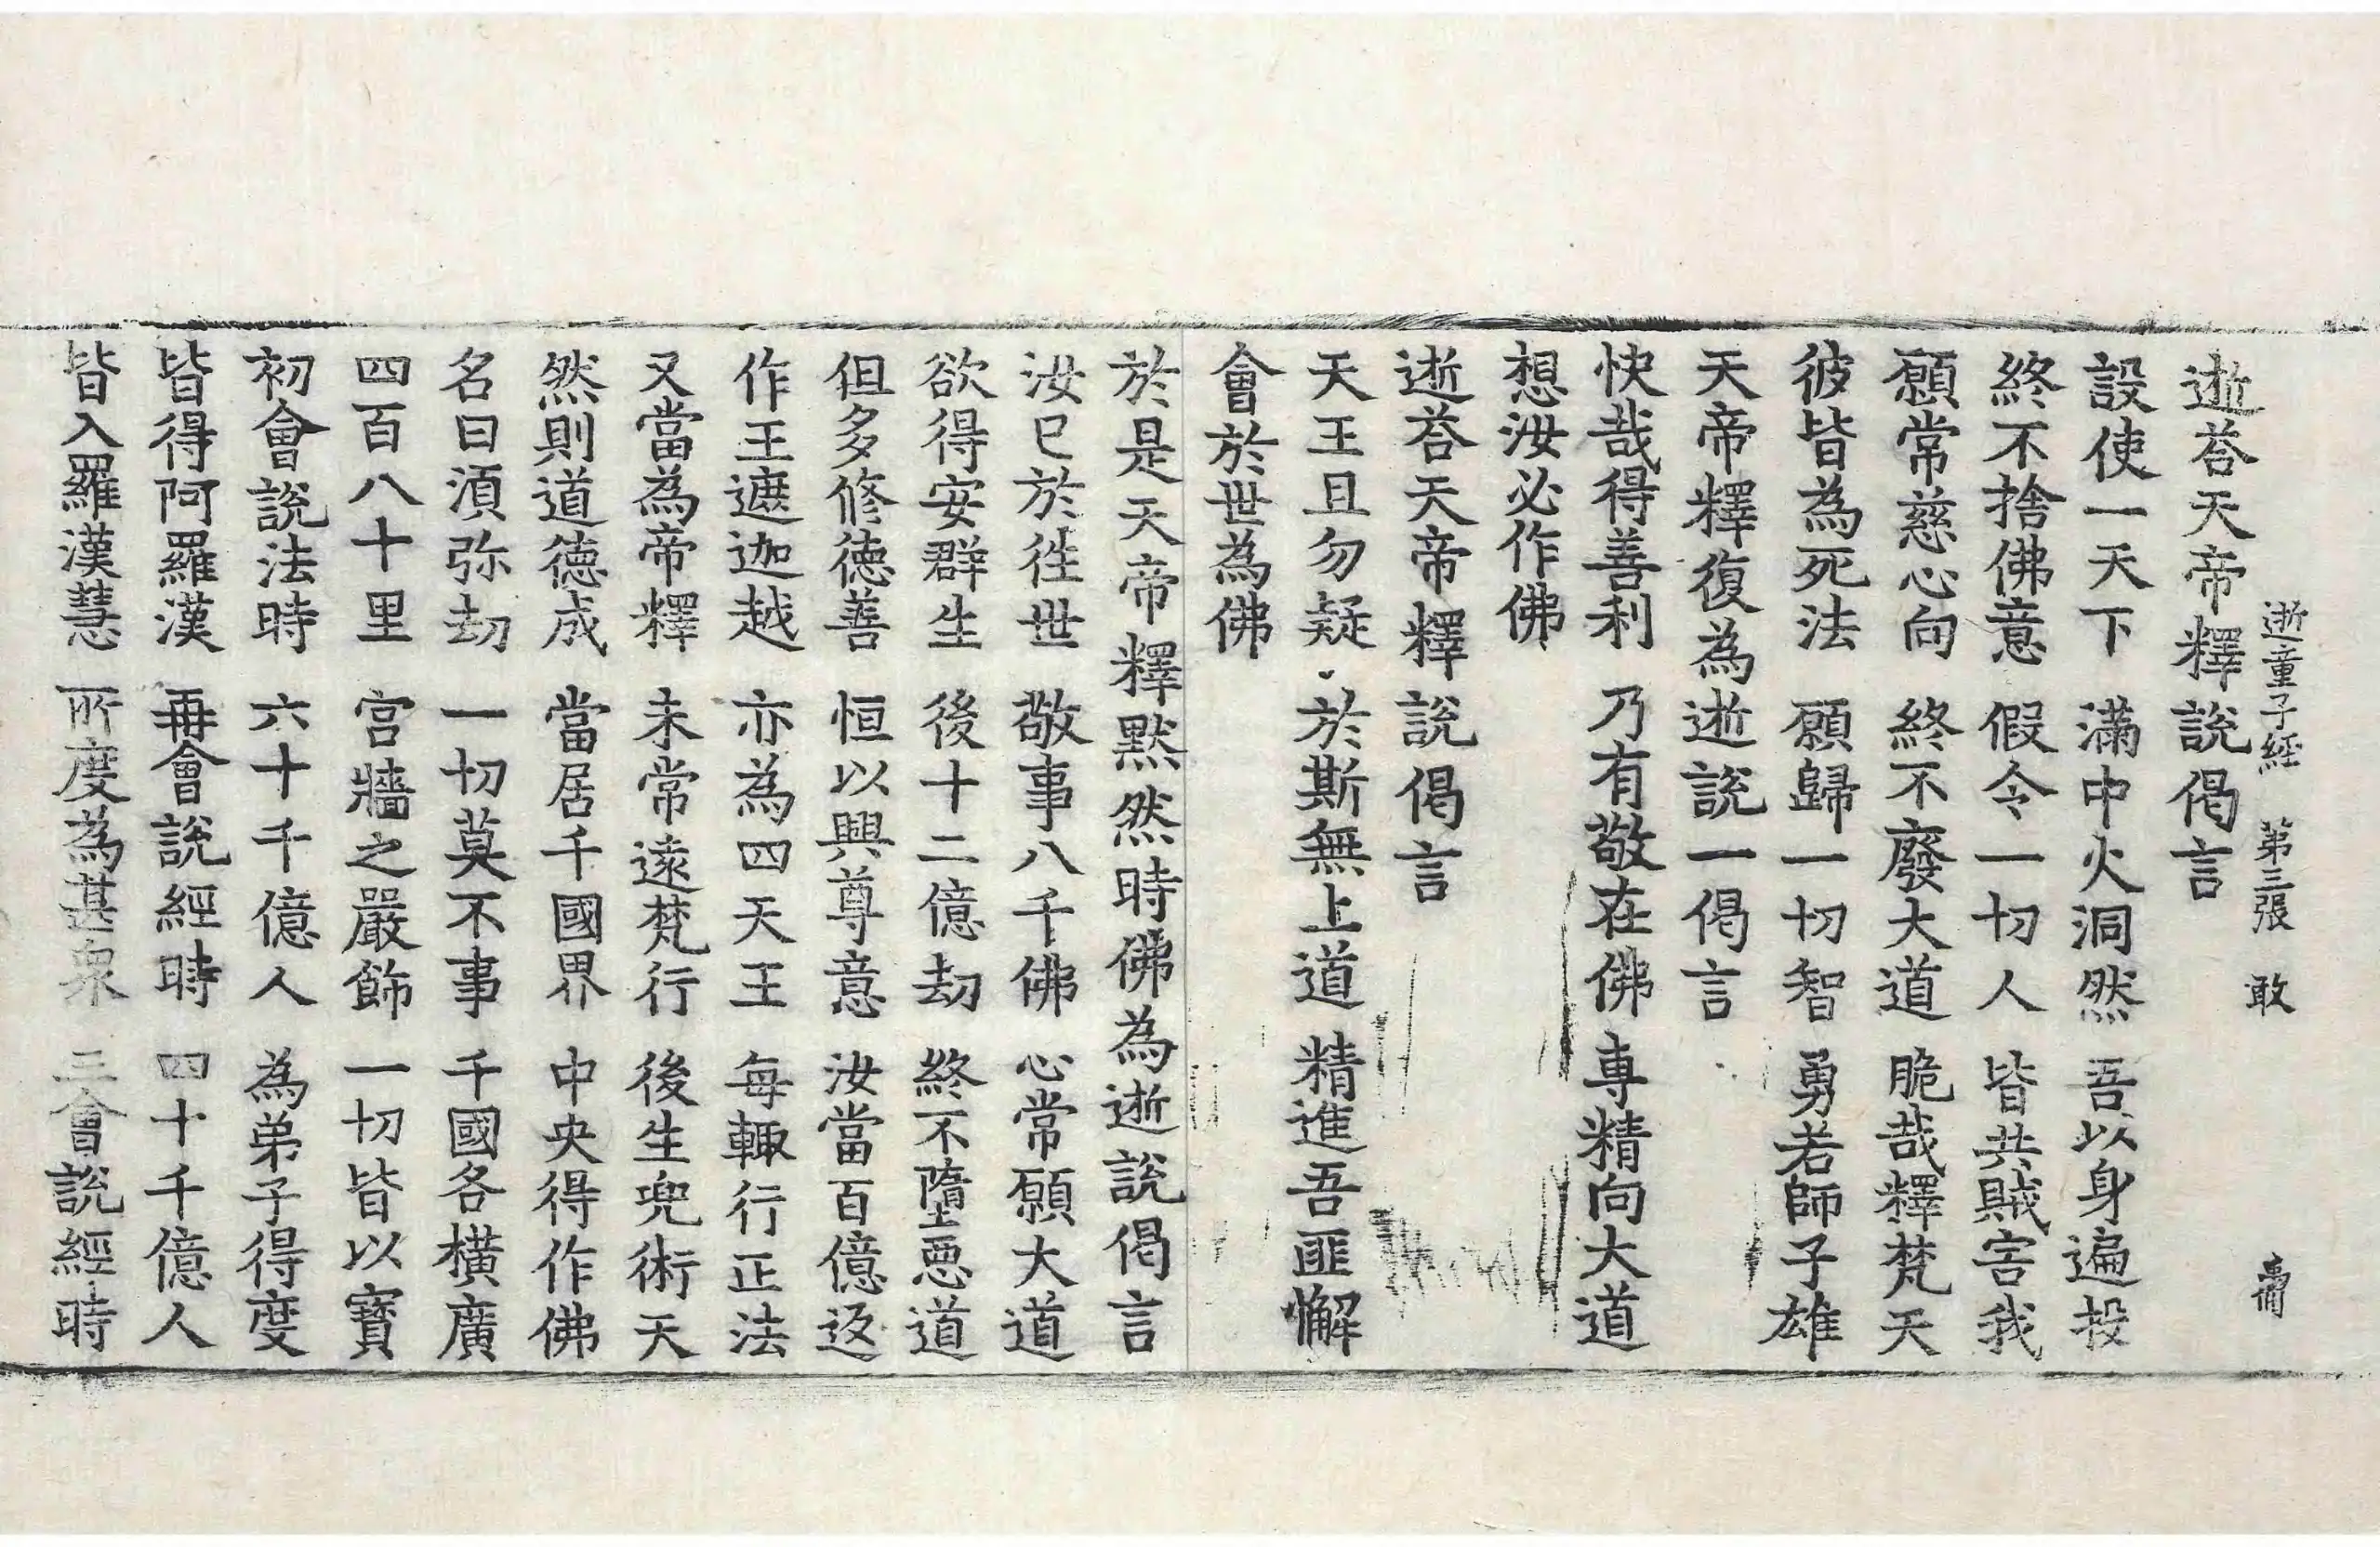 逝童子經　第三張　敢
逝荅天帝釋說偈言
設使一天下　滿中火洞然　吾以身遍投
終不捨佛意　假令一切人　皆共賊害我
願常慈心向　終不廢大道　脆哉釋梵天
彼皆為死法　願歸一切智　勇若師子雄
天帝釋復為逝說一偈言
快哉得善利　乃有敬在佛　專精向大道
想汝必作佛
逝荅天帝釋說偈言
天王且勿疑　於斯無上道　精進吾匪懈
會於世為佛
於是天帝釋黙然時佛為逝說偈言
汝已於徃世　敬事八千佛　心常願大道
欲得安群生　後十二億劫　終不墮惡道
但多修德善　恒以興尊意　汝當百億返
作王遮迦越　亦為四天王　每輙行正法
又當為帝釋　未常遠梵行　後生兜術天
然則道德成　當居千國界　中央得作佛
名曰湏弥劫　一切莫不事　千國各橫廣
四百八十里　宫牆之嚴飾　一切皆以寶
初會說法時　六十千億人　為弟子得度
皆得阿羅漢　再會說經時　四十千億人
皆入羅漢慧　所度為甚衆　三會說經時